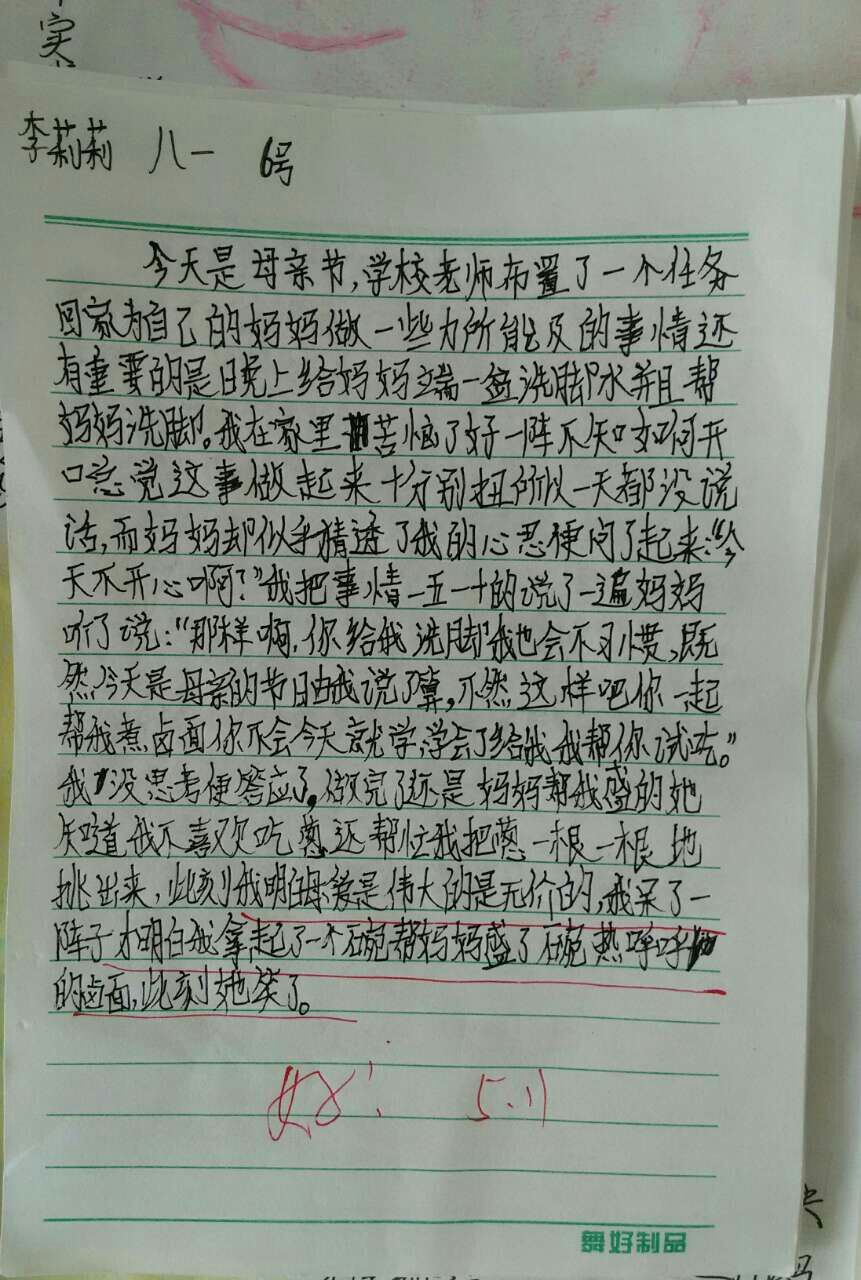 李莉莉 八一 6号
今天是母亲节,学校老师布置了一个任务
回家为自己的妈妈做一些力所能及的事情还
有重要的是晚上给妈妈端一盆洗脚水并且帮
妈妈洗脚。我在家里苦恼了好一阵不知如何开
口总觉这事做起来十分别扭所以一天都没说
话,而妈妈却似乎猜透了我的心思便问了起来:“今
天不开心啊?”我把事情一五一十的说了一遍妈妈
听了说:“那样啊,你给我洗脚我也会不习惯,既
然今天是母亲的节日由我说了算,不然这样吧你一起
帮我煮卤面你不会今天就学,学会了给我我帮你试吃。”
我没思考便答应了,做完了还是妈妈帮我盛的她
知道我不喜欢吃葱还帮忙我把葱一根一根地
挑出来,此刻我明白母爱是伟大的是无价的,我呆了一
阵子才明白我拿起了一个碗帮妈妈盛了碗热呼呼
的卤面,此刻她笑了。
好! 5.11
舞好制品